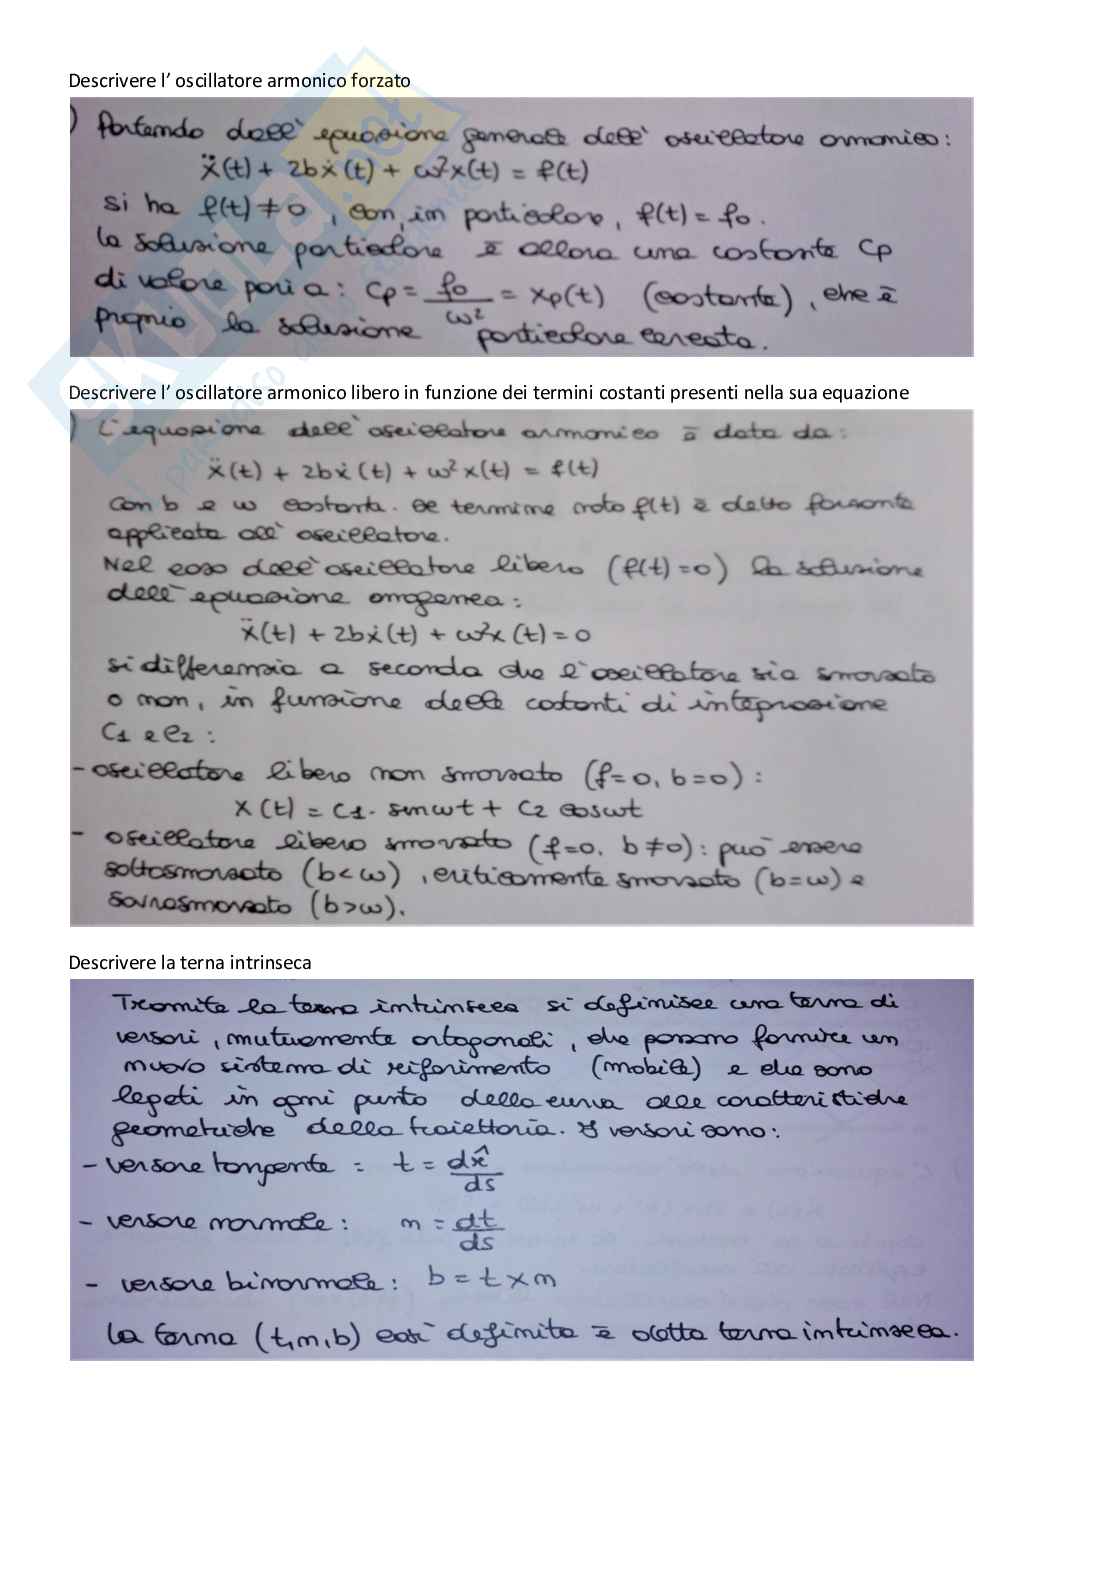 Descrivere l' oscillatore armonico forzato
) Partendo dall' equazione generale dell' oscillatore armonico:
ẍ(t) + 2bẋ(t) + ω²x(t) = f(t)
si ha f(t) ≠ 0, con, in particolare, f(t) = f₀.
la soluzione particolare è allora una costante Cp
di valore pari a: Cp = f₀/ω² = xp(t) (costante), che è
proprio la soluzione particolare cercata.
Descrivere l' oscillatore armonico libero in funzione dei termini costanti presenti nella sua equazione
) L'equazione dell' oscillatore armonico è data da:
ẍ(t) + 2bẋ(t) + ω²x(t) = f(t)
con b e ω costanti. Il termine noto f(t) è detto forzante
applicata all' oscillatore.
Nel caso dell' oscillatore libero (f(t)=0) la soluzione
dell' equazione omogenea:
ẍ(t) + 2bẋ(t) + ω²x(t) = 0
si differenzia a seconda che l' oscillatore sia smorzato
o non, in funzione delle costanti di integrazione
C1 e C2 :
- oscillatore libero non smorzato (f=0, b=0) :
x(t) = C1· sinωt + C2 cosωt
- oscillatore libero smorzato (f=0, b≠0): può essere
sottosmorzato (b<ω), criticamente smorzato (b=ω) e
sovrasmorzato (b>ω).
Descrivere la terna intrinseca
Tramite la terna intrinseca si definisce una terna di
versori, mutuamente ortogonali, che possono fornire un
nuovo sistema di riferimento (mobile) e che sono
legati in ogni punto della curva alle caratteristiche
geometriche della traiettoria. I versori sono:
- versore tangente : t = dx̂/ds
- versore normale : n = dt/ds
- versore binormale : b = t × n
la terna (t,n,b) così definita è detta terna intrinseca.